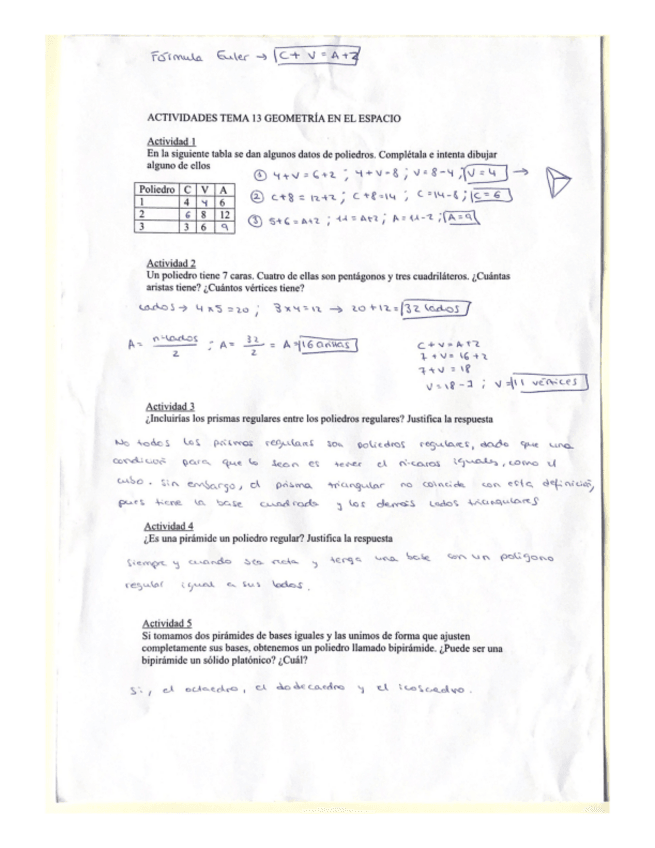 Fórmula Euler → C + V = A+2
ACTIVIDADES TEMA 13 GEOMETRÍA EN EL ESPACIO
Actividad 1
En la siguiente tabla se dan algunos datos de poliedros. Complétala e intenta dibujar
alguno de ellos
① 4+V=6+2 ; 4+V=8 ; V=8-4 ; V=4 →
Poliedro C V A
1 4 4 6
2 6 8 12
3 3 6 9
② C+8=12+2 ; C+8=14 ; C=14-8 ; C=6
③ 5+6=A+2 ; 11=A+2 ; A=11-2 ; A=9
Actividad 2
Un poliedro tiene 7 caras. Cuatro de ellas son pentágonos y tres cuadriláteros. ¿Cuántas
aristas tiene? ¿Cuántos vértices tiene?
Lados → 4x5=20 ; 3x4=12 → 20+12= 32 lados
A= nºlados/2 ; A= 32/2 = A= 16 aristas
C+V=A+2
7+V=16+2
7+V=18
V=18-7 ; V= 11 vértices
Actividad 3
¿Incluirías los prismas regulares entre los poliedros regulares? Justifica la respuesta
No todos los prismas regulares son poliedros regulares, dado que una
condición para que lo sean es tener el nºcaras iguales, como el
cubo. Sin embargo, el prisma triangular no coincide con esta definición,
pues tiene la base cuadrada y los demás lados triangulares
Actividad 4
¿Es una pirámide un poliedro regular? Justifica la respuesta
Siempre y cuando sea recta y tenga una base con un polígono
regular igual a sus lados.
Actividad 5
Si tomamos dos pirámides de bases iguales y las unimos de forma que ajusten
completamente sus bases, obtenemos un poliedro llamado bipirámide. ¿Puede ser una
bipirámide un sólido platónico? ¿Cuál?
Si, el octaedro, el dodecaedro y el icosaedro.